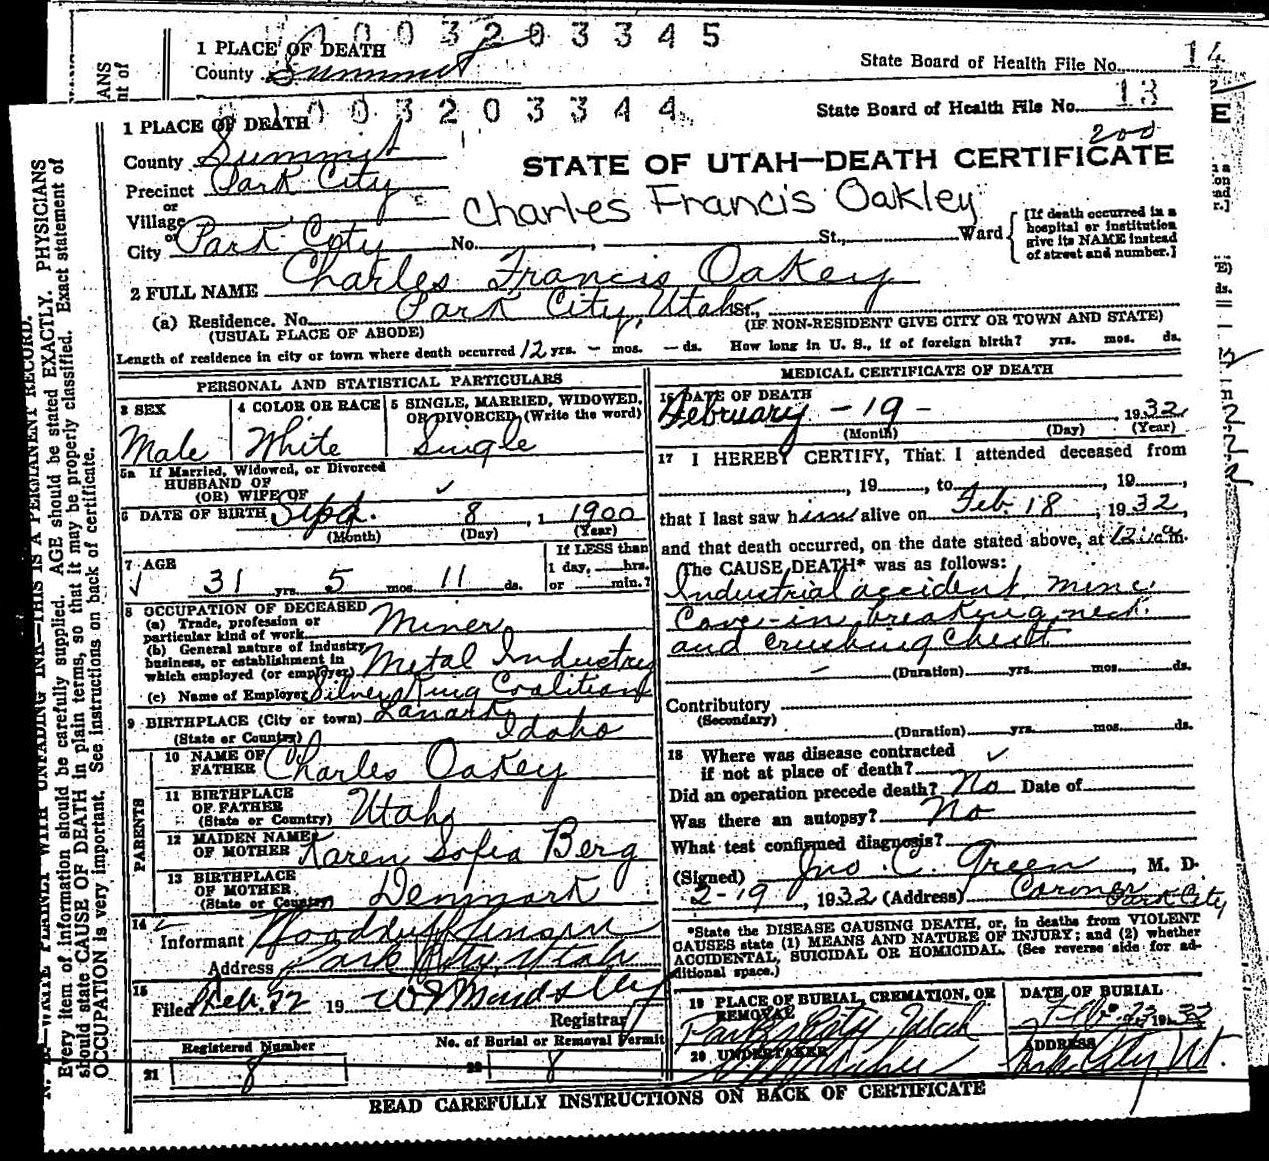 1003203345
1 PLACE OF DEATH
County Summit
State Board of Health File No. 14
1003203344
State Board of Health File No. 13
200
1 PLACE OF DEATH
County Summit
STATE OF UTAH—DEATH CERTIFICATE
Precinct Park City
or
Village
Charles Francis Oakley
or
City Park City No. , St., Ward
[If death occurred in a
hospital or institution
give its NAME instead
of street and number.]
2 FULL NAME Charles Francis Oakey
(a) Residence. No. Park City, Utah St.,
(USUAL PLACE OF ABODE) (IF NON-RESIDENT GIVE CITY OR TOWN AND STATE)
Length of residence in city or town where death occurred 12 yrs. – mos. – ds. How long in U. S., if of foreign birth? yrs. mos. ds.
PERSONAL AND STATISTICAL PARTICULARS
3 SEX
Male
4 COLOR OR RACE
White
5 SINGLE, MARRIED, WIDOWED,
OR DIVORCED, (Write the word)
Single
5a If Married, Widowed, or Divorced
HUSBAND OF
(OR) WIFE OF
6 DATE OF BIRTH Sept. 8, 1 1900
(Month) (Day) (Year)
7 AGE
31 yrs. 5 mos. 11 ds.
If LESS than
1 day, hrs.
or min.?
8 OCCUPATION OF DECEASED
(a) Trade, profession or
particular kind of work Miner
(b) General nature of industry
business, or establishment in
which employed (or employer) Metal Industry
(c) Name of Employer Silver King Coalition
9 BIRTHPLACE (City or town) Lanark
(State or Country) Idaho
PARENTS
10 NAME OF
FATHER Charles Oakey
11 BIRTHPLACE
OF FATHER
(State or Country) Utah
12 MAIDEN NAME
OF MOTHER Karen Sofia Berg
13 BIRTHPLACE
OF MOTHER
(State or Country) Denmark
14
Informant Woodruff
Address Park City, Utah
15
Filed Feb. 22 19
Registrar
Registered Number
21 8
No. of Burial or Removal Permit
22 8
MEDICAL CERTIFICATE OF DEATH
16 DATE OF DEATH
February – 19 – , 1932
(Month) (Day) (Year)
17 I HEREBY CERTIFY, That I attended deceased from
, 19 , to , 19 ,
that I last saw him alive on Feb. 18, 1932,
and that death occurred, on the date stated above, at 12:
The CAUSE DEATH* was as follows:
Industrial accident, mine
Cave-in breaking neck
and crushing chest
(Duration) yrs. mos. ds.
Contributory
(Secondary)
(Duration) yrs. mos. ds.
18 Where was disease contracted
if not at place of death?
Did an operation precede death? No Date of
Was there an autopsy? No
What test confirmed diagnosis?
(Signed) Jno. C. Green, M. D.
2-19, 1932 (Address) Coroner
Park City
*State the DISEASE CAUSING DEATH, or, in deaths from VIOLENT
CAUSES state (1) MEANS AND NATURE OF INJURY; and (2) whether
ACCIDENTAL, SUICIDAL OR HOMICIDAL. (See reverse side for ad-
ditional space.)
19 PLACE OF BURIAL, CREMATION, OR
REMOVAL
Park City, Utah
DATE OF BURIAL
20 UNDERTAKER
ADDRESS
Park City, Ut.
READ CAREFULLY INSTRUCTIONS ON BACK OF CERTIFICATE
N. B.—WRITE PLAINLY WITH UNFADING INK—THIS IS A PERMANENT RECORD.
Every item of information should be carefully supplied. AGE should be stated EXACTLY. PHYSICIANS
should state CAUSE OF DEATH in plain terms, so that it may be properly classified. Exact statement of
OCCUPATION is very important. See instructions on back of certificate.